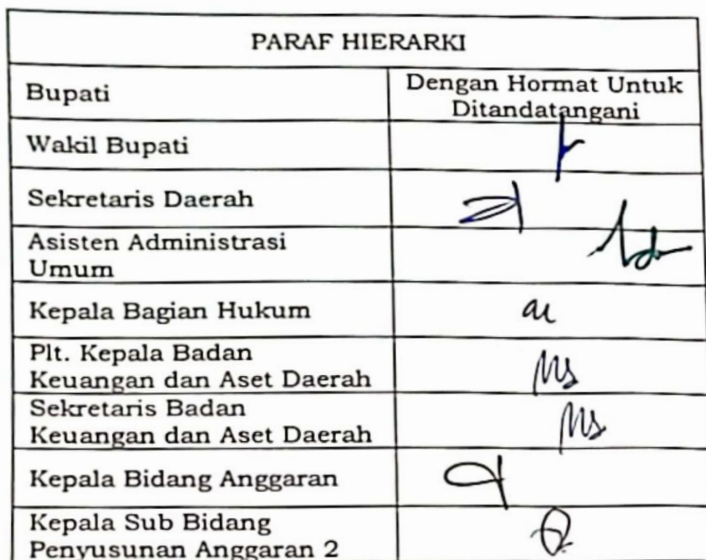 PARAF HIERARKI
Bupati
Dengan Hormat Untuk
Ditandatangani
Wakil Bupati
Sekretaris Daerah
Asisten Administrasi
Umum
Kepala Bagian Hukum
Plt. Kepala Badan
Keuangan dan Aset Daerah
Sekretaris Badan
Keuangan dan Aset Daerah
Kepala Bidang Anggaran
Kepala Sub Bidang
Penyusunan Anggaran 2